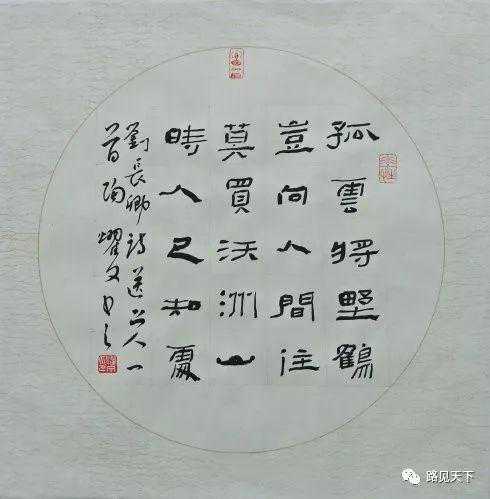 孤雲將野鶴
豈向人間住
莫買沃洲山
時人已知處
劉長卿詩送上人一
首耀文书之
路见天下